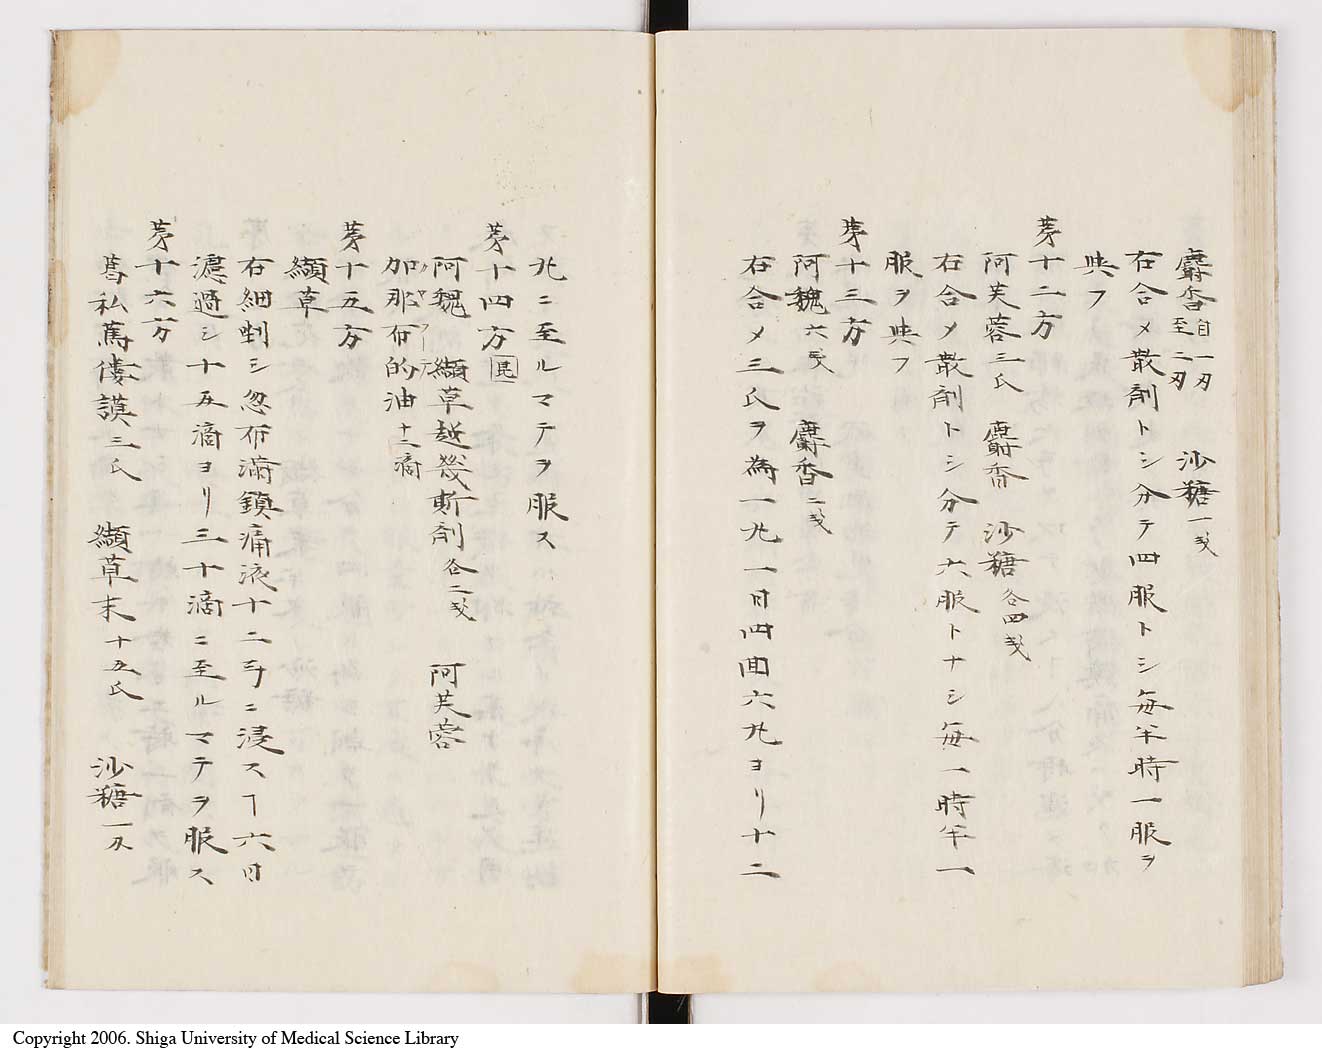 麝香自一刃至二刃 沙糖一戔
右合メ散剤トシ分テ四服トシ毎半時一服ヲ
與フ
第十二方
阿芙蓉三氏 麝香 沙糖各四戔
右合メ散剤トシ分テ六服トナシ毎一時半一
服ヲ與フ
第十三方
阿魏六戔 麝香二戔
右合メ三氏ヲ為一丸一日四回六丸ヨリ十二
丸ニ至ルマテヲ服ス
第十四方
阿魏 纈草越幾斯剤各二戔 阿芙蓉
加那布的油十二滴
カヤフーテ
第十五方
纈草
右細剉シ忽布満鎮痛液十二ニ浸スヿ六日
濾過シ十五滴ヨリ三十滴ニ至ルマテヲ服ス
第十六方
葛私蔦僂謨三氏 纈草末十五氏 沙糖一刃
Copyright 2006. Shiga University of Medical Science Library